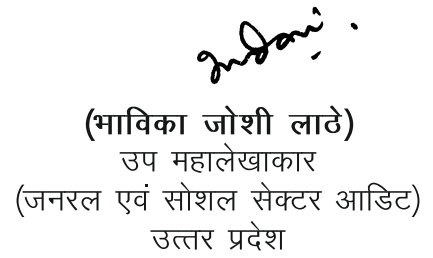 (भाविका जोशी लाठे)
उप महालेखाकार
(जनरल एवं सोशल सेक्टर आडिट)
उत्तर प्रदेश